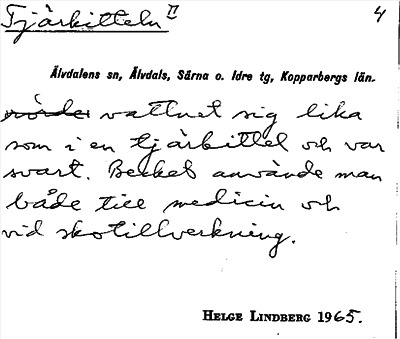 Tjärkitteln II 4
Älvdalens sn, Älvdals, Särna o. Idre tg, Kopparbergs län.
vattnet sig lika
som i en tjärkittel och var
svart. Becket använde man
både till medicin och
vid skotillverkning.
HELGE LINDBERG 1965.